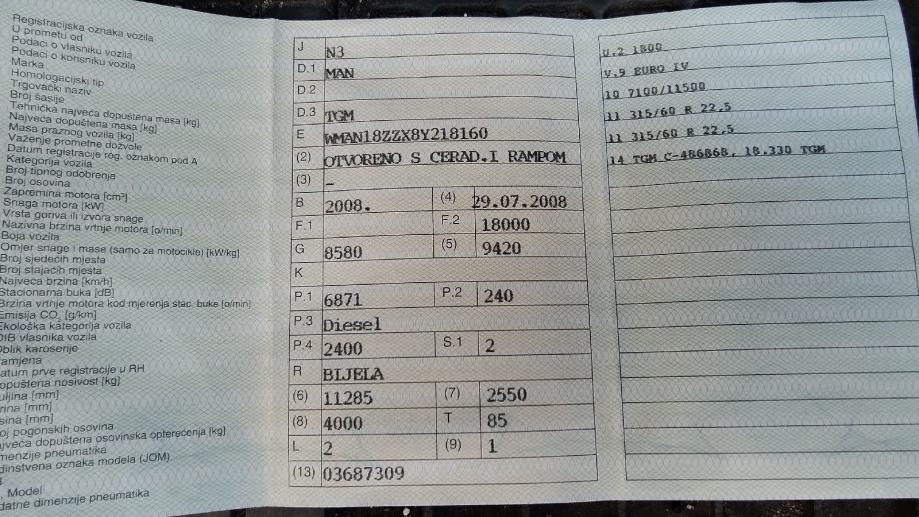 Registracijska oznaka vozila
U prometu od
Podaci o vlasniku vozila
Podaci o korisniku vozila
Marka
Homologacijski tip
Trgovački naziv
Broj šasije
Tehnička najveća dopuštena masa [kg]
Najveća dopuštena masa [kg]
Masa praznog vozila [kg]
Važenje prometne dozvole
Datum registracije reg. oznakom pod A
Kategorija vozila
Broj tipnog odobrenja
Broj osovina
Zapremina motora [cm³]
Snaga motora [kW]
Vrsta goriva ili izvora snage
Nazivna brzina vrtnje motora [o/min]
Boja vozila
Omjer snage i mase (samo za motocikle) [kW/kg]
Broj sjedećih mjesta
Broj stajaćih mjesta
Najveća brzina [km/h]
Stacionarna buka [dB]
Brzina vrtnje motora kod mjerenja stac. buke [o/min]
Emisija CO₂ [g/km]
Ekološka kategorija vozila
OIB vlasnika vozila
oblik karoserije
amjena
atum prve registracije u RH
opuštena nosivost [kg]
uljina [mm]
rina [mm]
sina [mm]
oj pogonskih osovina
jveća dopuštena osovinska opterećenja [kg]
menzije pneumatika
dinstvena oznaka modela (JOM)
. Model
datne dimenzije pneumatika
J N3
D.1 MAN
D.2
D.3 TGM
E WMAN18ZZX8Y218160
(2) OTVORENO S CERAD.I RAMPOM
(3) –
B 2008. (4) 29.07.2008
F.1 F.2 18000
G 8580 (5) 9420
K
P.1 6871 P.2 240
P.3 Diesel
P.4 2400 S.1 2
R BIJELA
(6) 11285 (7) 2550
(8) 4000 T 85
L 2 (9) 1
(13) 03687309
U.2 1800
V.9 EURO IV
10 7100/11500
11 315/60 R 22.5
11 315/60 R 22.5
14 TGM C-4B6B6B, 18.330 TGM